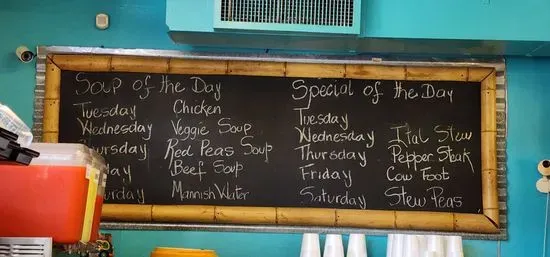 Soup of the Day
Tuesday Chicken
Wednesday Veggie Soup
Thursday Red Peas Soup
Beef Soup
Mannish Water
Special of the Day
Tuesday
Wednesday Ital Stew
Thursday Pepper Steak
Friday Cow Foot
Saturday Stew Peas